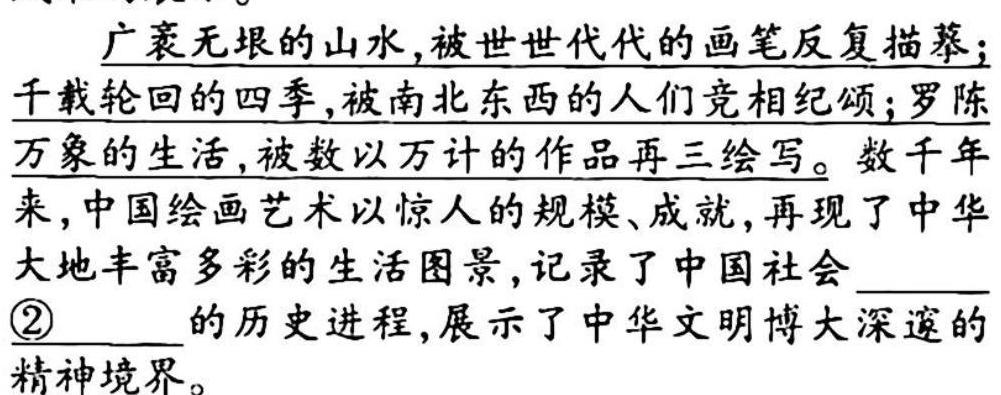 广袤无垠的山水,被世世代代的画笔反复描摹;
千载轮回的四季,被南北东西的人们竞相纪颂;罗陈
万象的生活,被数以万计的作品再三绘写。数千年
来,中国绘画艺术以惊人的规模、成就,再现了中华
大地丰富多彩的生活图景,记录了中国社会______
②______的历史进程,展示了中华文明博大深邃的
精神境界。